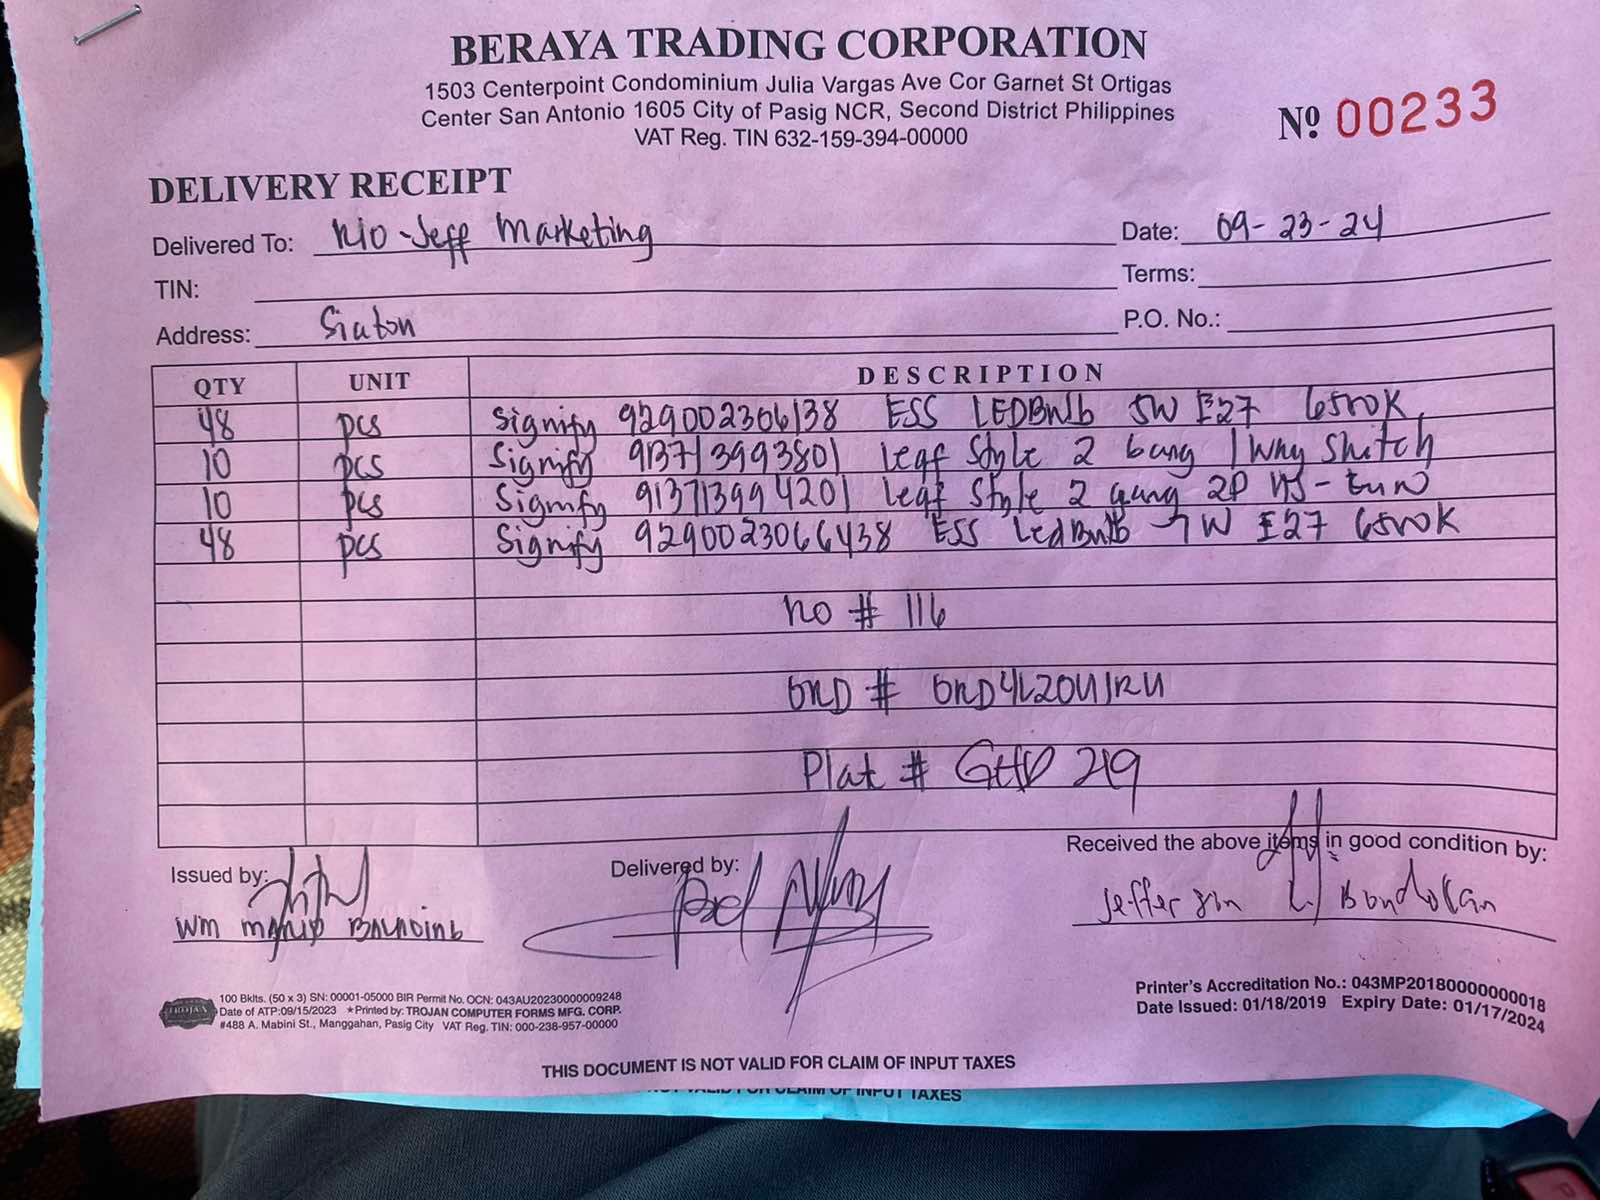 BERAYA TRADING CORPORATION
1503 Centerpoint Condominium Julia Vargas Ave Cor Garnet St Ortigas
Center San Antonio 1605 City of Pasig NCR, Second District Philippines
VAT Reg. TIN 632-159-394-00000
Nº 00233
DELIVERY RECEIPT
Delivered To: Rio-Jeff Marketing
Date: 09-23-24
TIN:
Terms:
Address: Siaton
P.O. No.:
QTY UNIT DESCRIPTION
48 pcs Signify 929002306138 ESS LEDBulb 5W E27 6500K
10 pcs Signify 913713993801 Leaf Style 2 Gang 1 Way Switch
10 pcs Signify 913713994201 Leaf Style 2 gang 2P
48 pcs Signify 9290023066438 ESS LedBulb 7W E27 6500K
# 116
ORD # ORD4L20U1RU
Plat # 219
Issued by:
Delivered by:
Received the above items in good condition by:
100 Bklts. (50 x 3) SN: 00001-05000 BIR Permit No. OCN: 043AU20230000009248
Date of ATP:09/15/2023 ★Printed by: TROJAN COMPUTER FORMS MFG. CORP.
#488 A. Mabini St., Manggahan, Pasig City VAT Reg. TIN: 000-238-957-00000
TROJAN
Printer's Accreditation No.: 043MP20180000000018
Date Issued: 01/18/2019 Expiry Date: 01/17/2024
THIS DOCUMENT IS NOT VALID FOR CLAIM OF INPUT TAXES
VALID FOR CLAIM OF INPUT TAXES